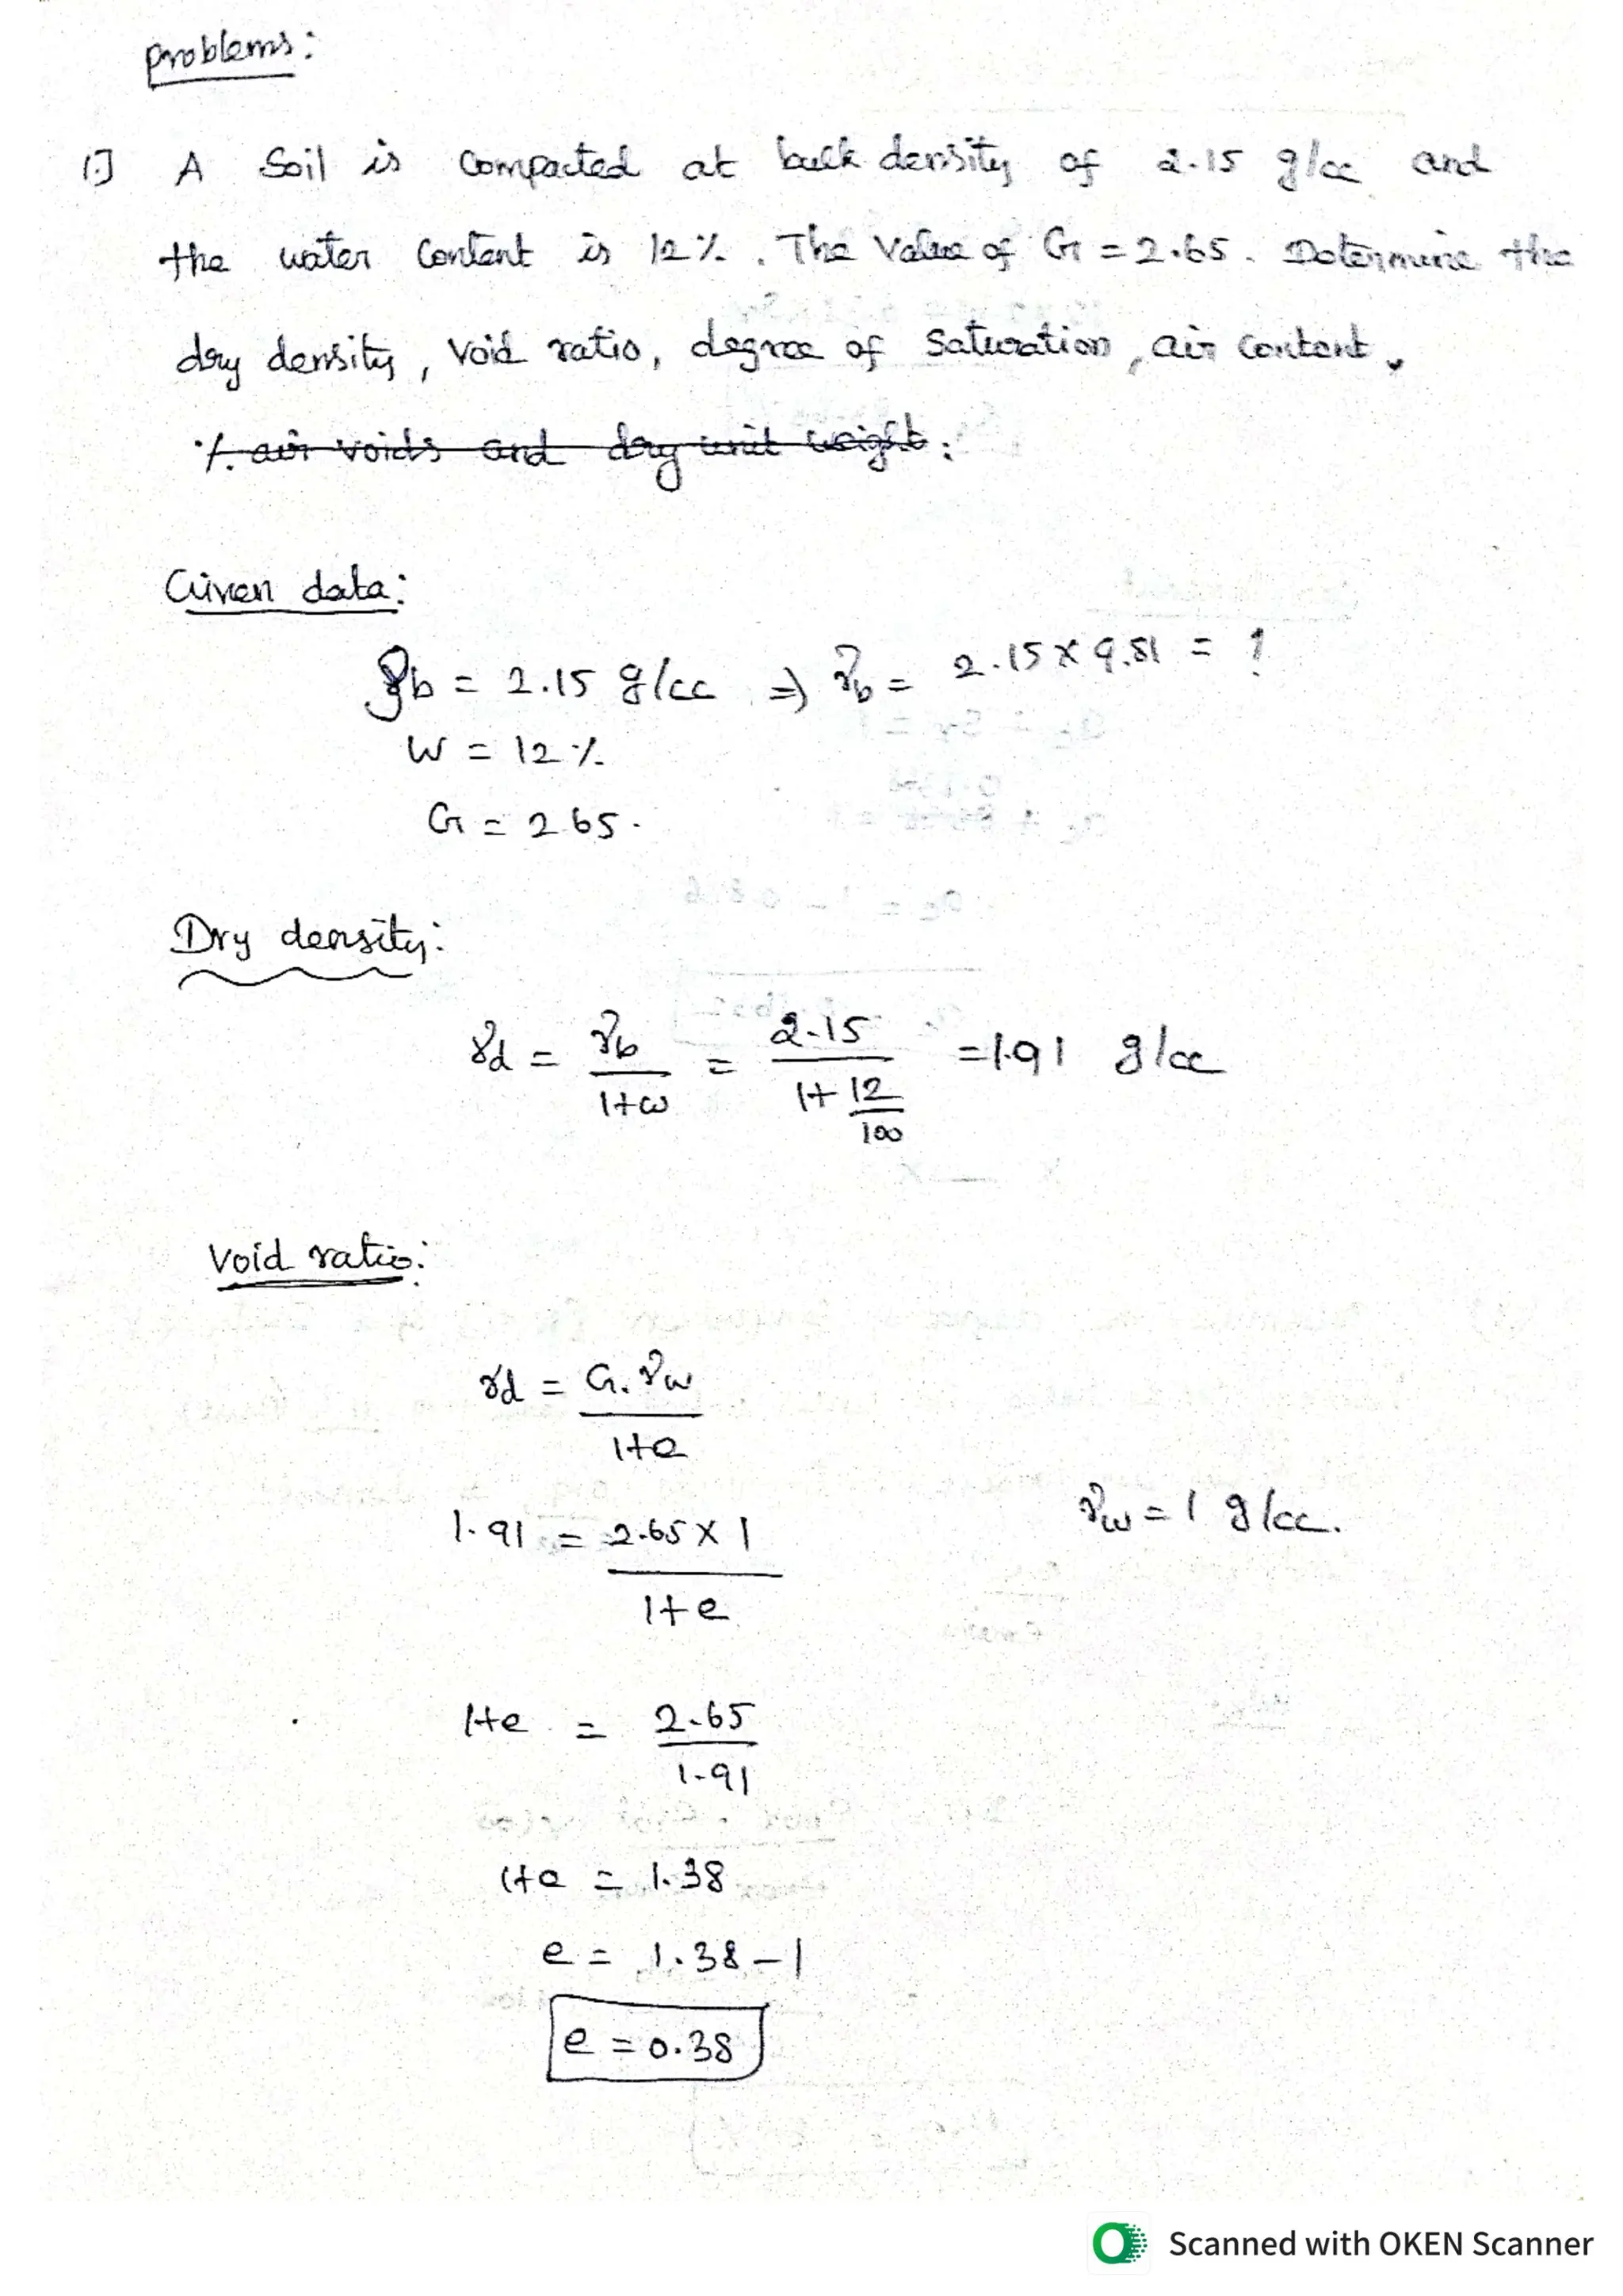 Problems:
1.] A Soil is Compacted at bulk density of 2.15 g/cc and
the water Content is 12%. The Value of G = 2.65. Determine the
dry density, Void ratio, degree of Saturation, air Content.
% air voids and dry unit weight:
Given data:
ρb = 2.15 g/cc ⇒ γb = 2.15 × 9.81 = ?
W = 12%
G = 2.65.
Dry density:
γd = γb / 1+ω = 2.15 / 1+ 12/100 = 1.91 g/cc
Void ratio:
γd = G. γw / 1+e
1.91 = 2.65 × 1 / 1+e
γw = 1 g/cc.
1+e = 2.65 / 1.91
1+e = 1.38
e = 1.38 – 1
e = 0.38
Scanned with OKEN Scanner